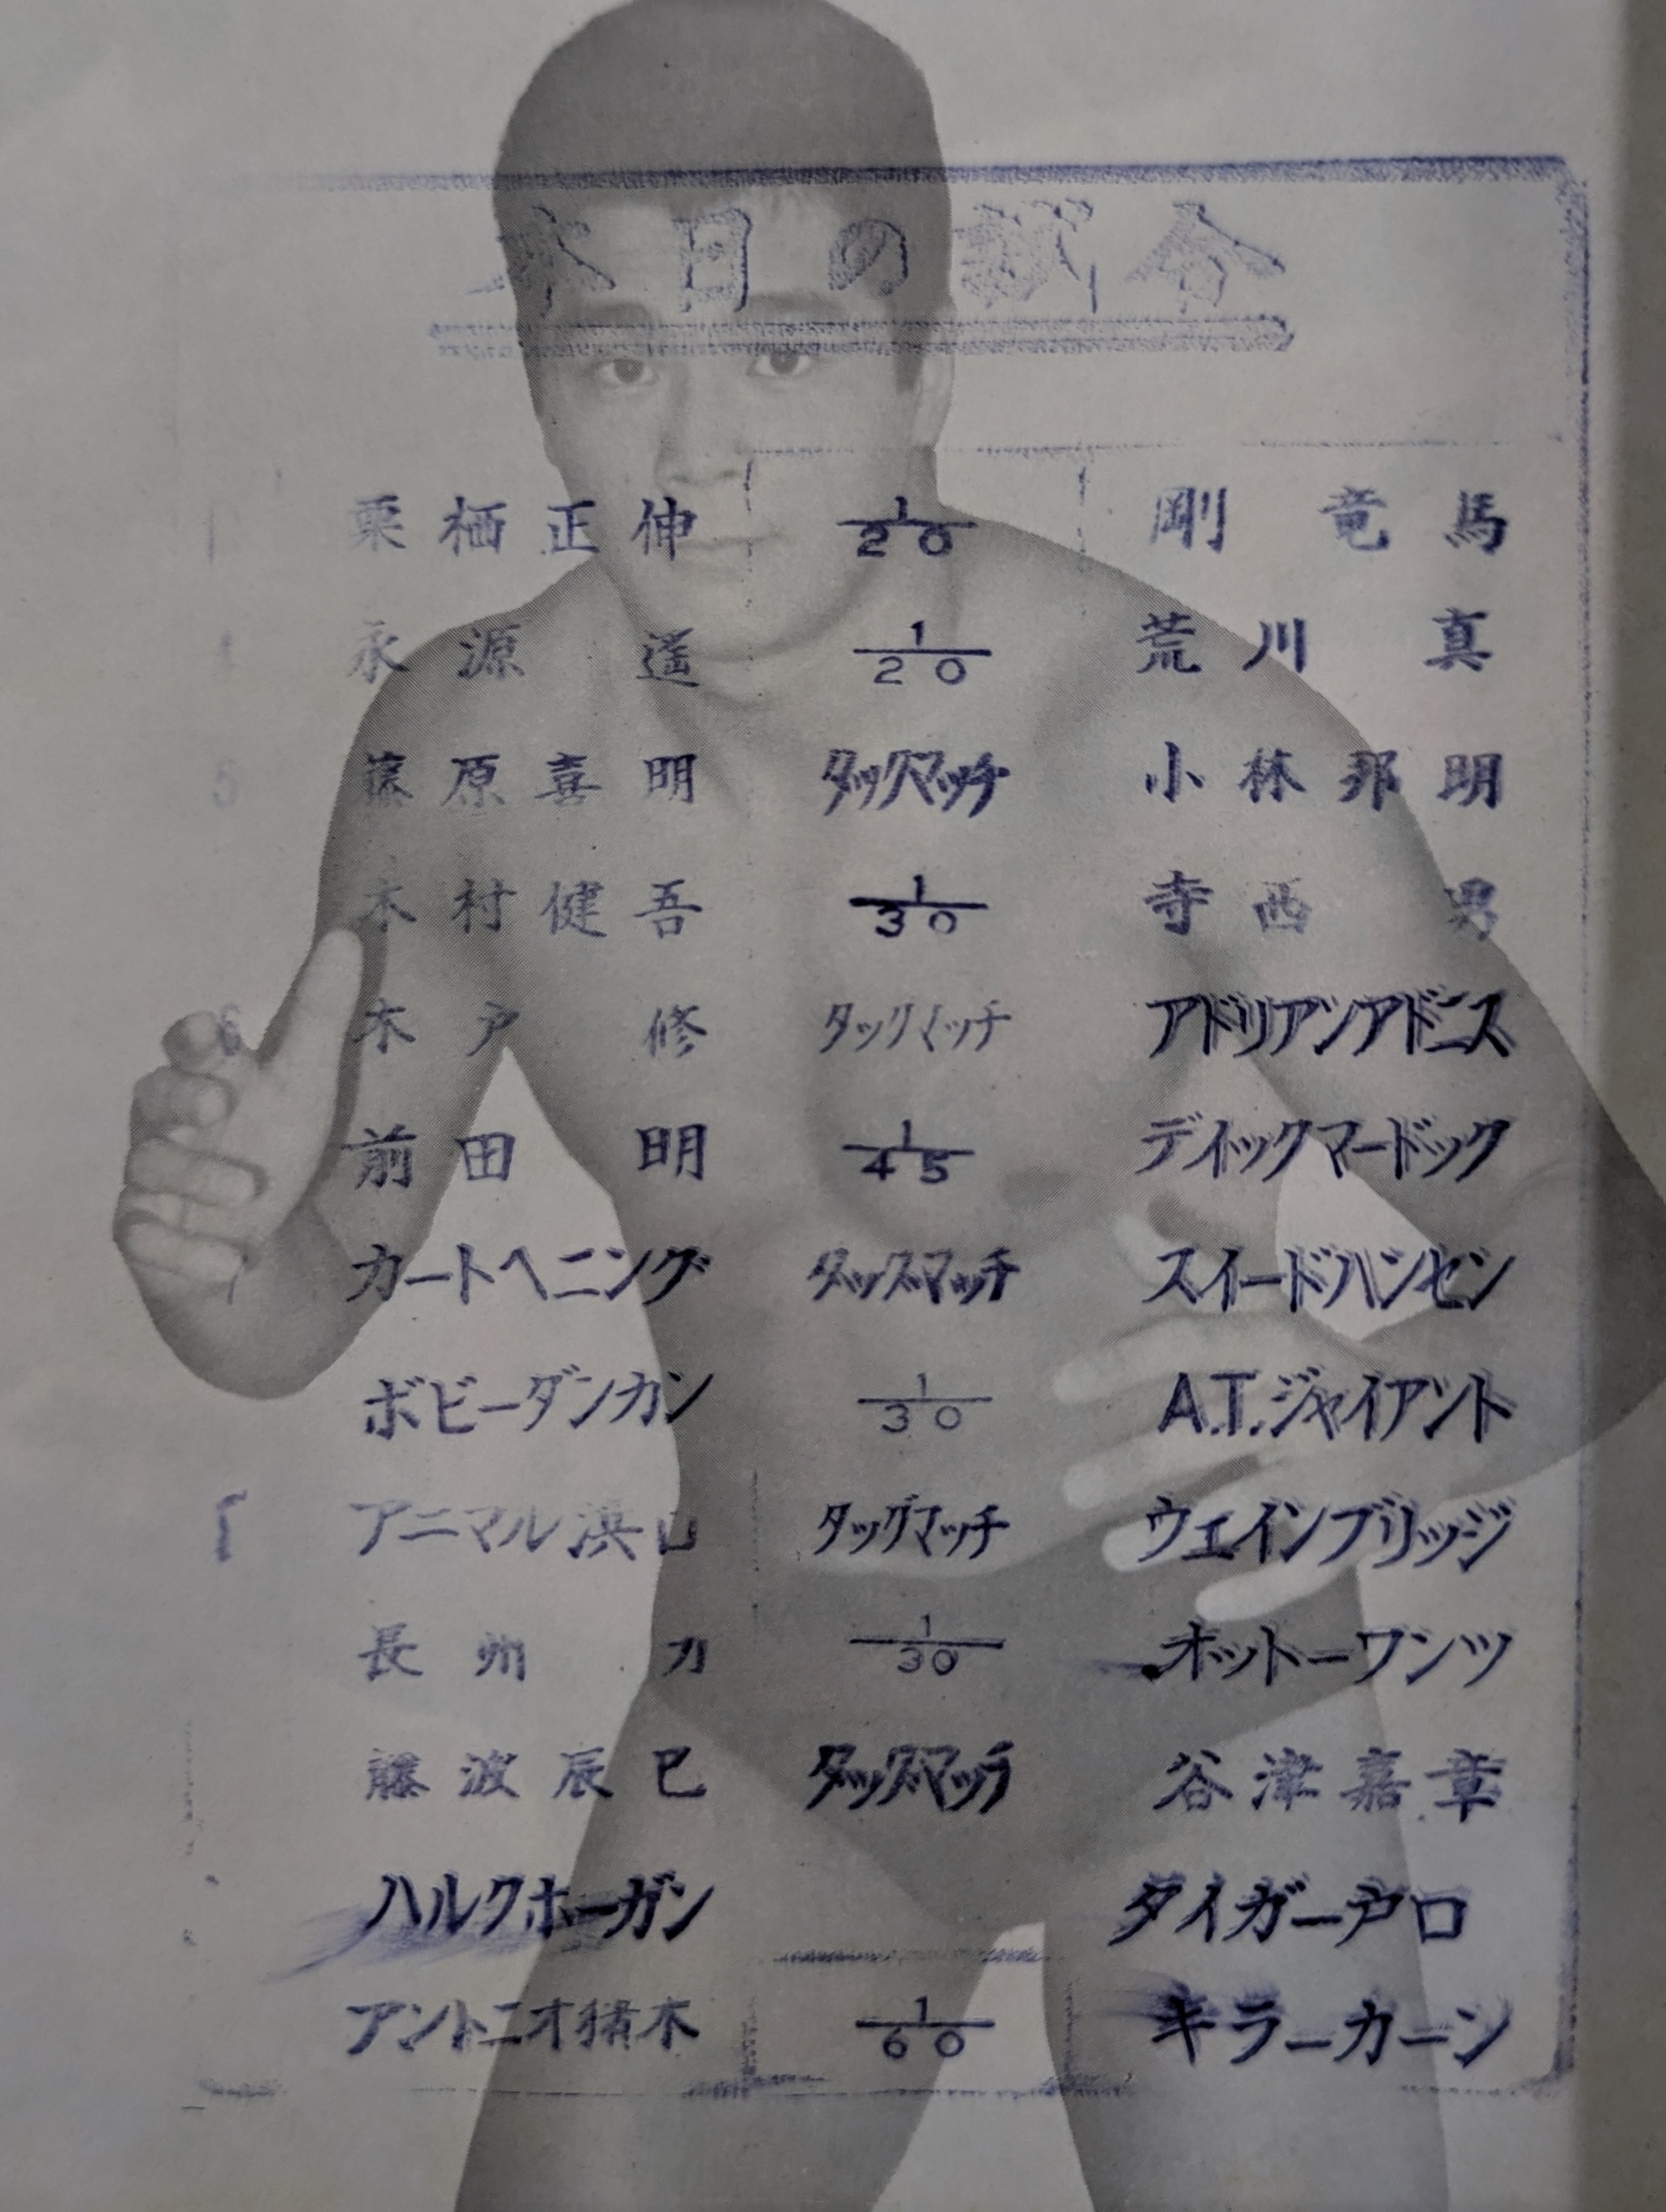 本日の試合
1 栗栖正伸 1/20 剛竜馬
4 永源遥 1/20 荒川真
5 藤原喜明 タッグマッチ 小林邦明
木村健吾 1/30 寺西勇
6 木戸修 タッグマッチ アドリアンアドニス
前田明 1/45 ディックマードック
7 カートヘニング タッグマッチ スイードハンセン
ボビーダンカン 1/30 A.T.ジャイアント
アニマル浜口 タッグマッチ ウエインブリッジ
長州力 1/30 オットーワンツ
藤波辰巳 タッグマッチ 谷津嘉章
ハルクホーガン タイガー戸口
アントニオ猪木 1/60 キラーカーン